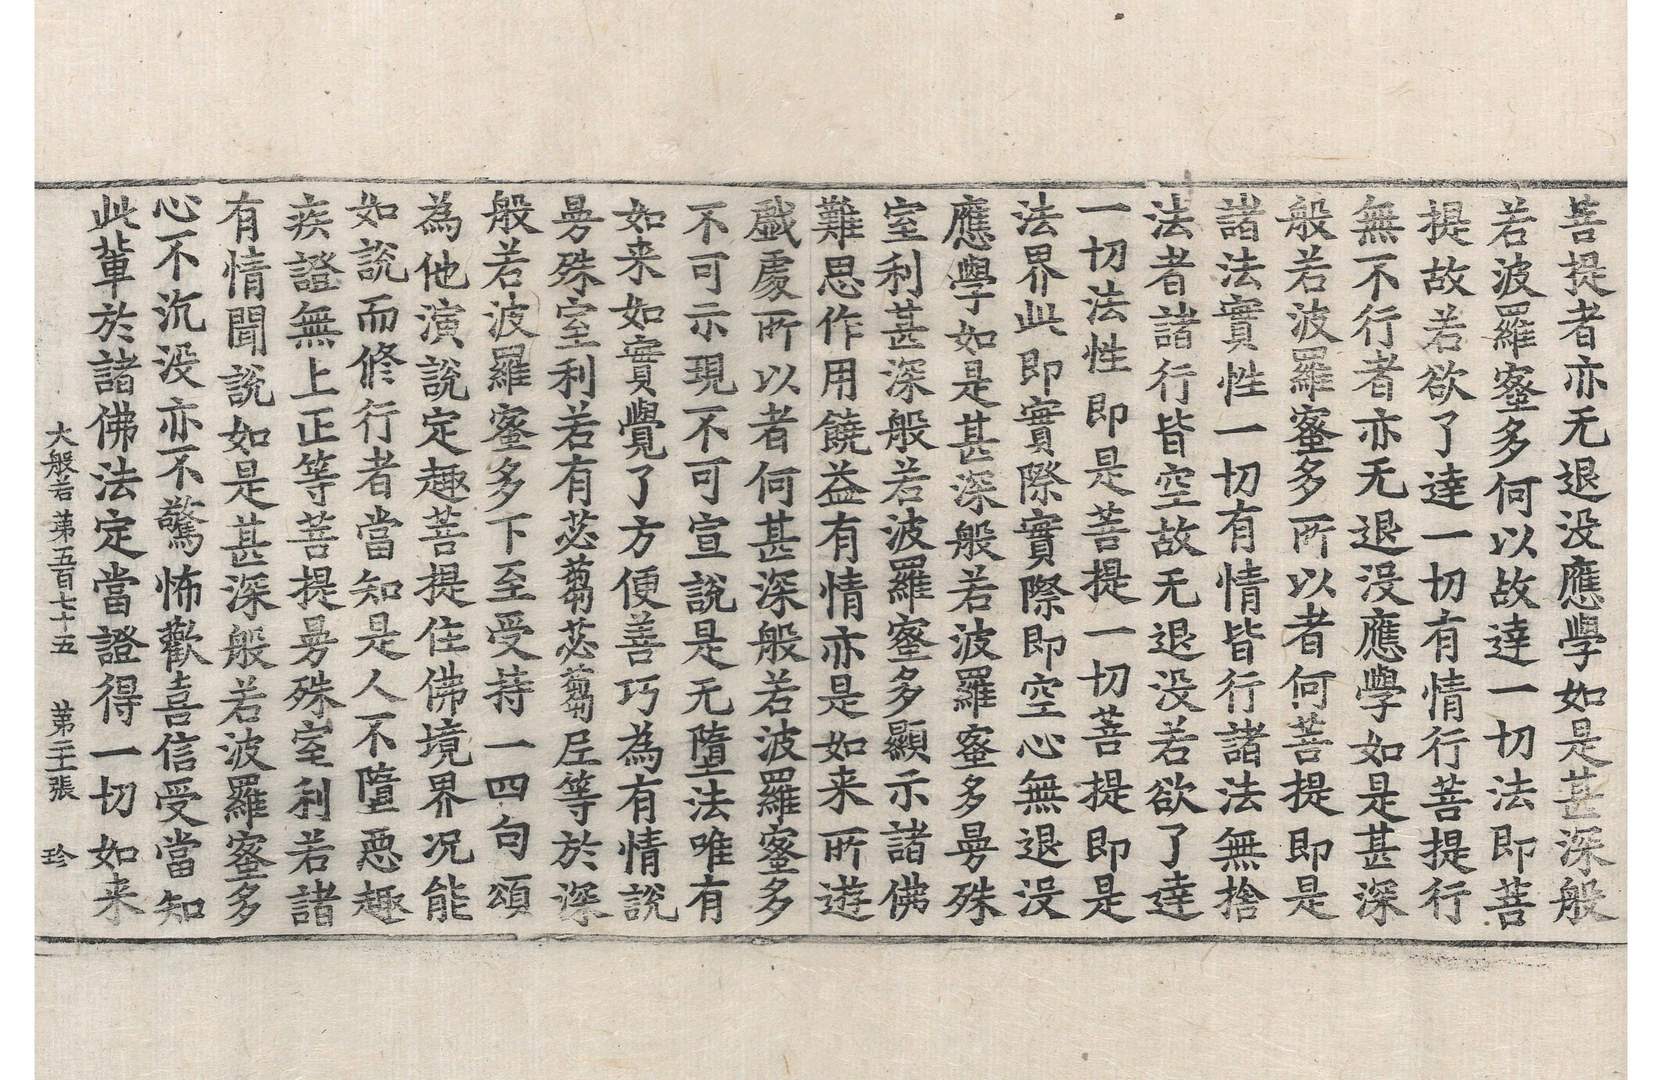 菩提者亦无退没應學如是甚深般
若波羅蜜多何以故達一切法即菩
提故若欲了達一切有情行菩提行
無不行者亦无退没應學如是甚深
般若波羅蜜多所以者何菩提即是
諸法實性一切有情皆行諸法無捨
法者諸行皆空故无退没若欲了達
一切法性即是菩提一切菩提即是
法界此即實際實際即空心無退没
應學如是甚深般若波羅蜜多曼殊
室利甚深般若波羅蜜多顯示諸佛
難思作用饒益有情亦是如来所遊
戲處所以者何甚深般若波羅蜜多
不可示現不可宣說是无墮法唯有
如来如實覺了方便善巧為有情說
曼殊室利若有苾蒭苾蒭尼等於深
般若波羅蜜多下至受持一四句頌
為他演說定趣菩提住佛境界况能
如說而修行者當知是人不墮惡趣
疾證無上正等菩提曼殊室利若諸
有情聞說如是甚深般若波羅蜜多
心不沉没亦不驚怖歡喜信受當知
此輩於諸佛法定當證得一切如来
大般若第五百七十五 第二十張 珍